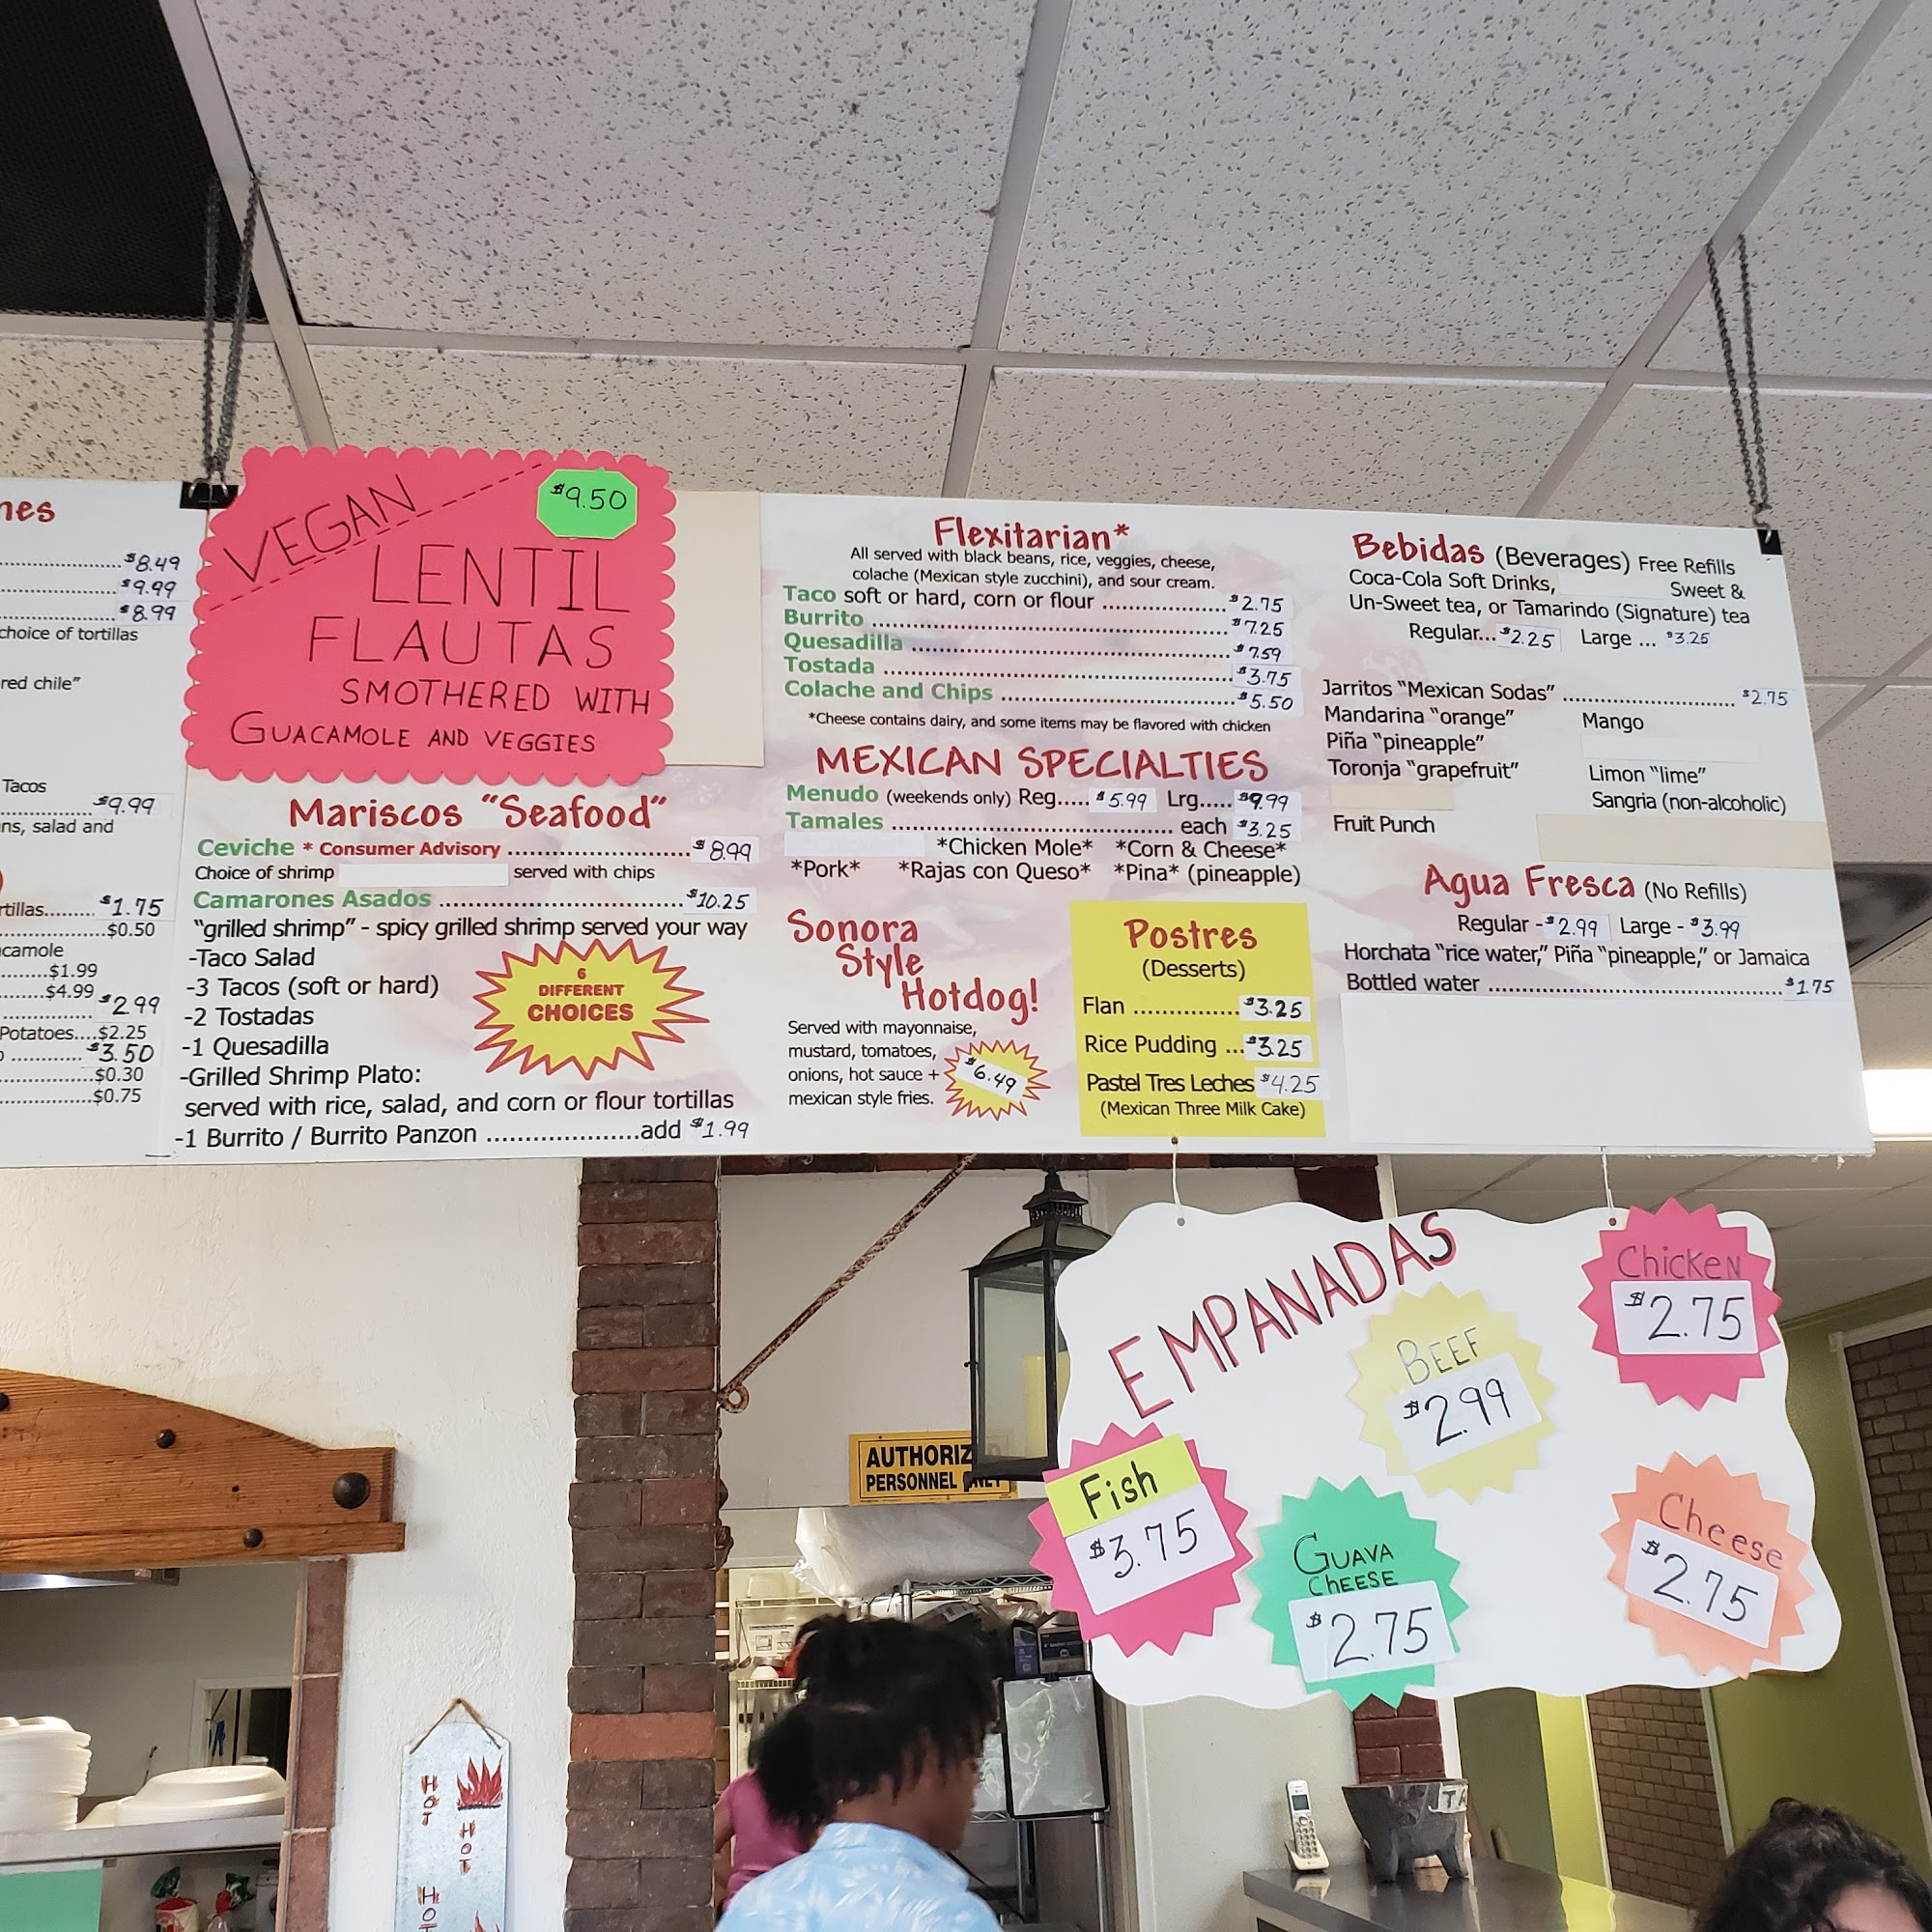 nes
$8.49
$9.99
$8.99
choice of tortillas
red chile"
Tacos
$9.99
ns, salad and
rtillas......... $1.75
$0.50
camole
$1.99
$4.99
$2.99
Potatoes....$2.25
$3.50
$0.30
$0.75
VEGAN
$9.50
LENTIL
FLAUTAS
SMOTHERED WITH
GUACAMOLE AND VEGGIES
Mariscos "Seafood"
Ceviche * Consumer Advisory ........................... $8.99
Choice of shrimp served with chips
Camarones Asados ................................... $10.25
"grilled shrimp" - spicy grilled shrimp served your way
-Taco Salad
-3 Tacos (soft or hard)
-2 Tostadas
-1 Quesadilla
-Grilled Shrimp Plato:
served with rice, salad, and corn or flour tortillas
-1 Burrito / Burrito Panzon ......................add $1.99
6
DIFFERENT
CHOICES
Flexitarian*
All served with black beans, rice, veggies, cheese,
colache (Mexican style zucchini), and sour cream.
Taco soft or hard, corn or flour .................. $2.75
Burrito .................................................... $7.25
Quesadilla .............................................. $7.59
Tostada .................................................. $3.75
Colache and Chips .................................. $5.50
*Cheese contains dairy, and some items may be flavored with chicken
MEXICAN SPECIALTIES
Menudo (weekends only) Reg..... $5.99 Lrg..... $9.99
Tamales ........................................... each $3.25
*Chicken Mole* *Corn & Cheese*
*Pork* *Rajas con Queso* *Pina* (pineapple)
Sonora
Style
Hotdog!
Served with mayonnaise,
mustard, tomatoes,
onions, hot sauce +
mexican style fries.
$6.49
Postres
(Desserts)
Flan ................ $3.25
Rice Pudding ... $3.25
Pastel Tres Leches $4.25
(Mexican Three Milk Cake)
Bebidas (Beverages) Free Refills
Coca-Cola Soft Drinks, Sweet &
Un-Sweet tea, or Tamarindo (Signature) tea
Regular... $2.25 Large ... $3.25
Jarritos "Mexican Sodas" ........................... $2.75
Mandarina "orange" Mango
Piña "pineapple"
Toronja "grapefruit" Limon "lime"
Sangria (non-alcoholic)
Fruit Punch
Agua Fresca (No Refills)
Regular - $2.99 Large - $3.99
Horchata "rice water," Piña "pineapple," or Jamaica
Bottled water .............................................. $1.75
EMPANADAS
Chicken
$2.75
BEEF
$2.99
Fish
$3.75
GUAVA
CHEESE
$2.75
Cheese
$2.75
AUTHORIZ
PERSONNEL
HOT
HOT
HOT